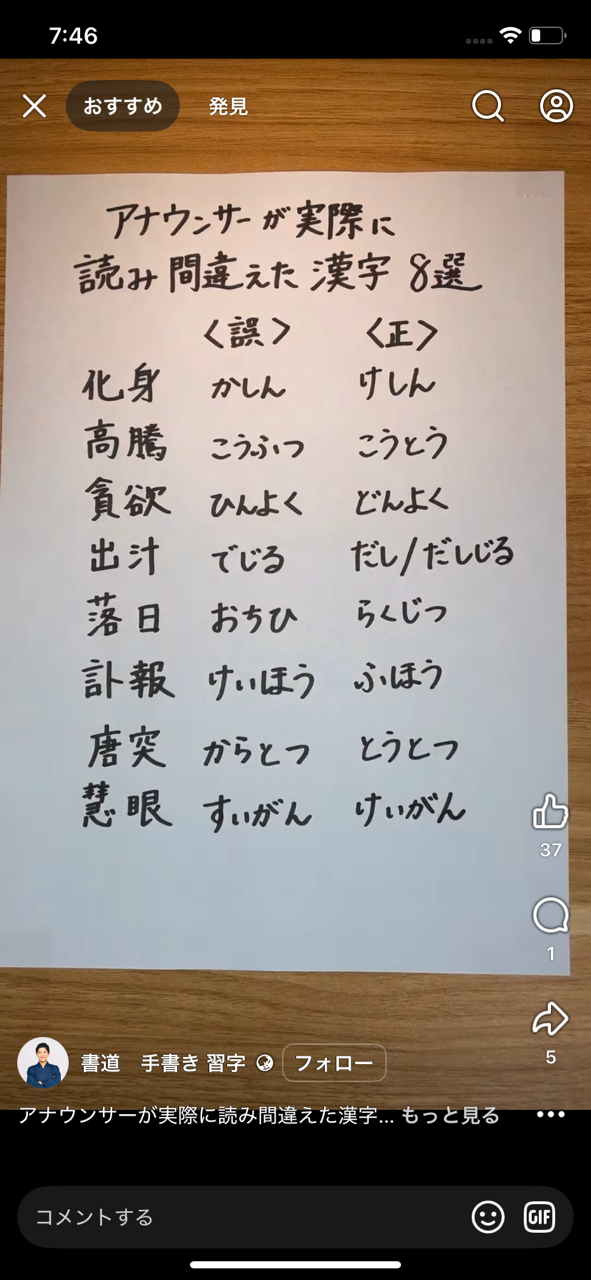 7:46
おすすめ 発見
アナウンサーが実際に
読み間違えた漢字 8選
〈誤〉 〈正〉
化身 かしん けしん
高騰 こうふつ こうとう
貪欲 ひんよく どんよく
出汁 でじる だし/だしじる
落日 おちひ らくじつ
訃報 けいほう ふほう
唐突 からとつ とうとつ
慧眼 すいがん けいがん
37
1
5
書道 手書き 習字 フォロー
アナウンサーが実際に読み間違えた漢字... もっと見る
コメントする GIF